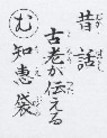 昔話
古老が伝える
む知恵袋